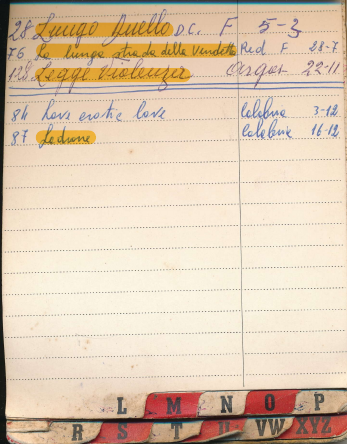 28 Lungo Duello D.C. F 5-3
76 La lunga strada della Vendetta Red F 28-7
128 Legge Violenza Argos 22-11
84 Love erotic love Calabria 3-12
87 Ladrone Calabria 16-12
L M N O P
R S T U VW XYZ